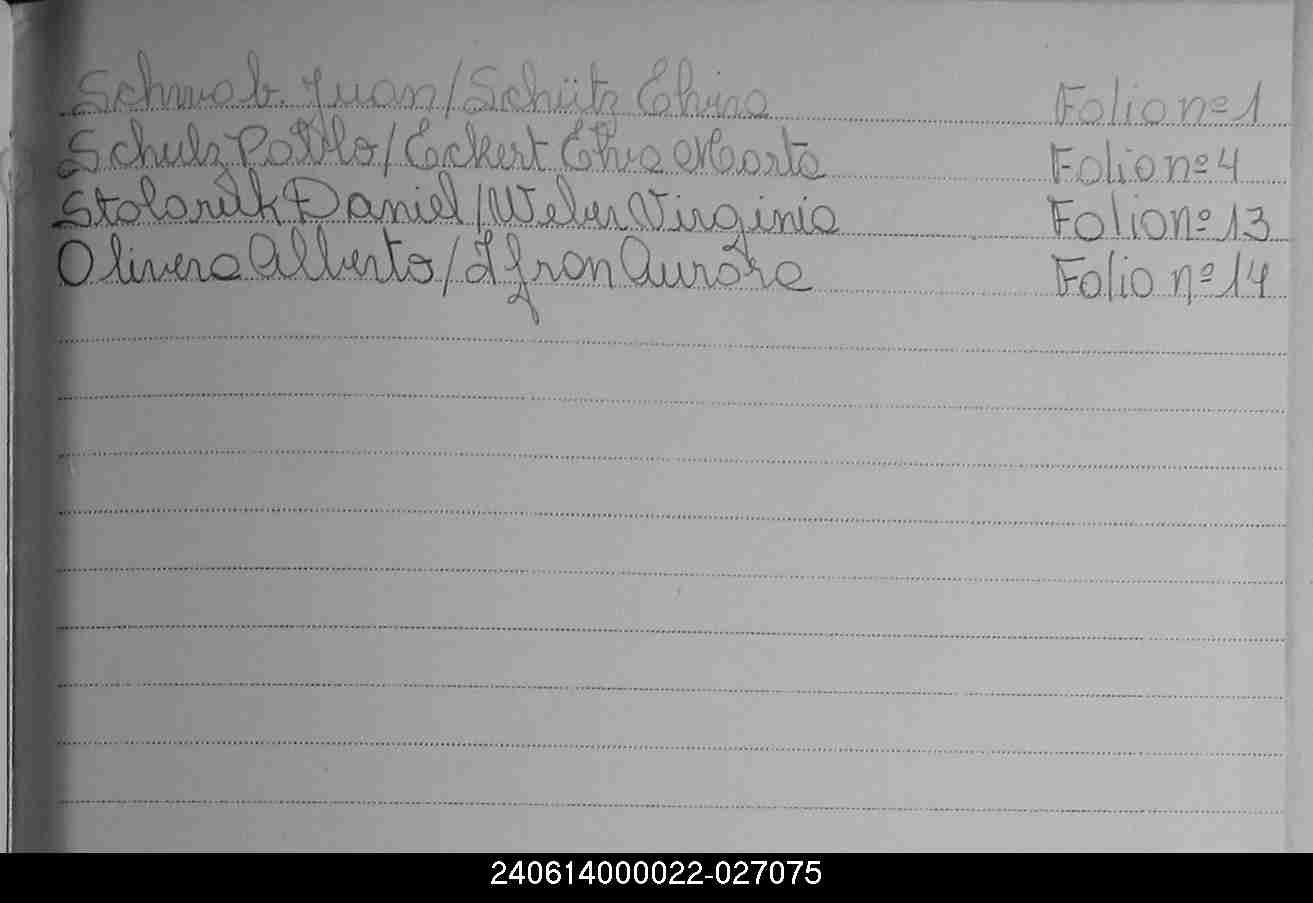 Schwab Juan/Schütz Elvira Folio nº 1
Schulz Pablo/Eckert Elva Marta Folio nº 4
Daniel/Weber Virginia Folio nº 13
Olivera Alberto/Ifran Aurora Folio nº 14
240614000022-027075